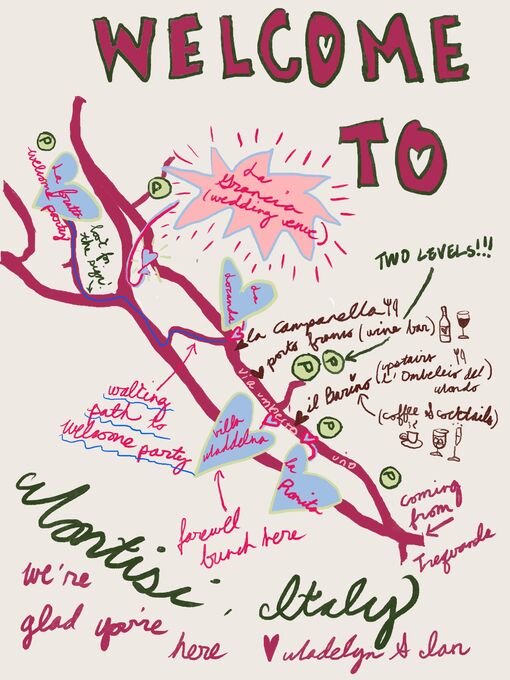 WELCOME
TO
P
La
Grancia
(wedding venue)
welcome party
P
look for
the sign!
TWO LEVELS!!!
La
Locanda
la Campanella
porto franco (wine bar)
P P
via umberto
uno
il Barino
(upstairs
L'Ombelico del
Mondo
(coffee & cocktails)
walking
path to
welcome party
villa
Madelyna
la Pianita
P
P
farewell
brunch here
coming
from
Trequanda
Montisi, Italy
we're
glad you're
here
Madelyn & Ian